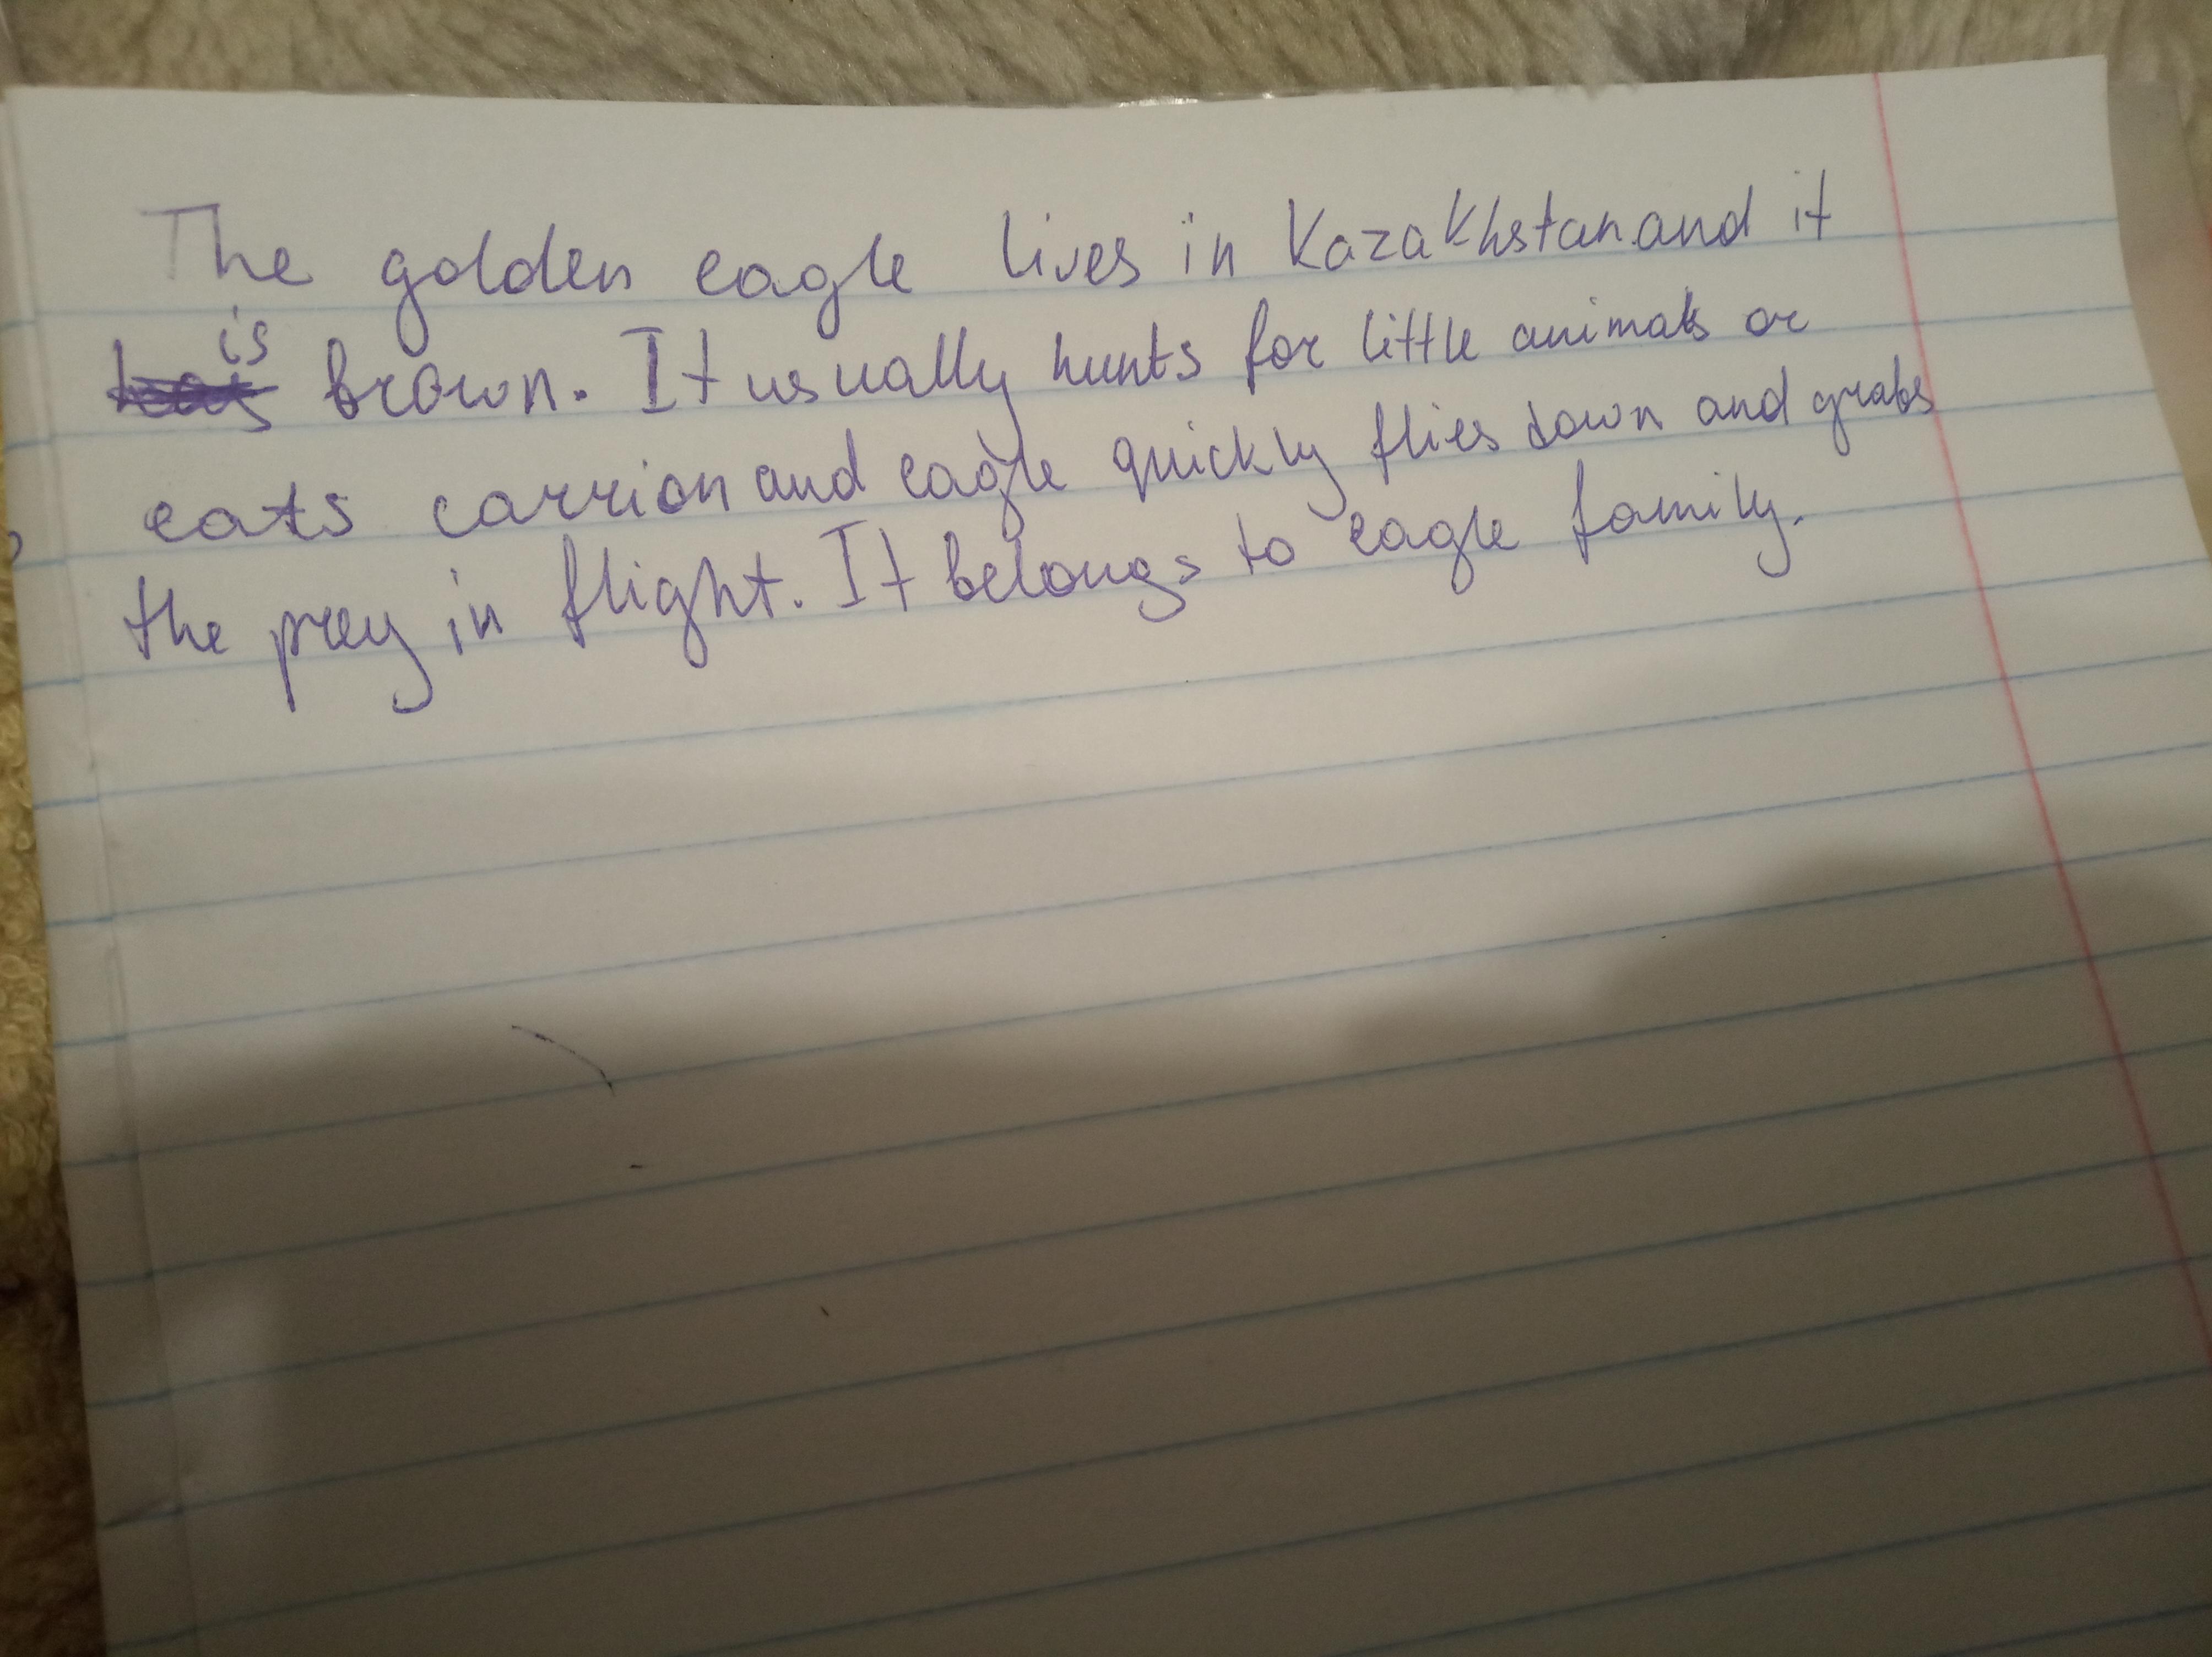 The golden eagle lives in Kazakhstan and it
is brown. It usually hunts for little animals or
eats carrion and eagle quickly flies down and grabs
the prey in flight. It belongs to eagle family.